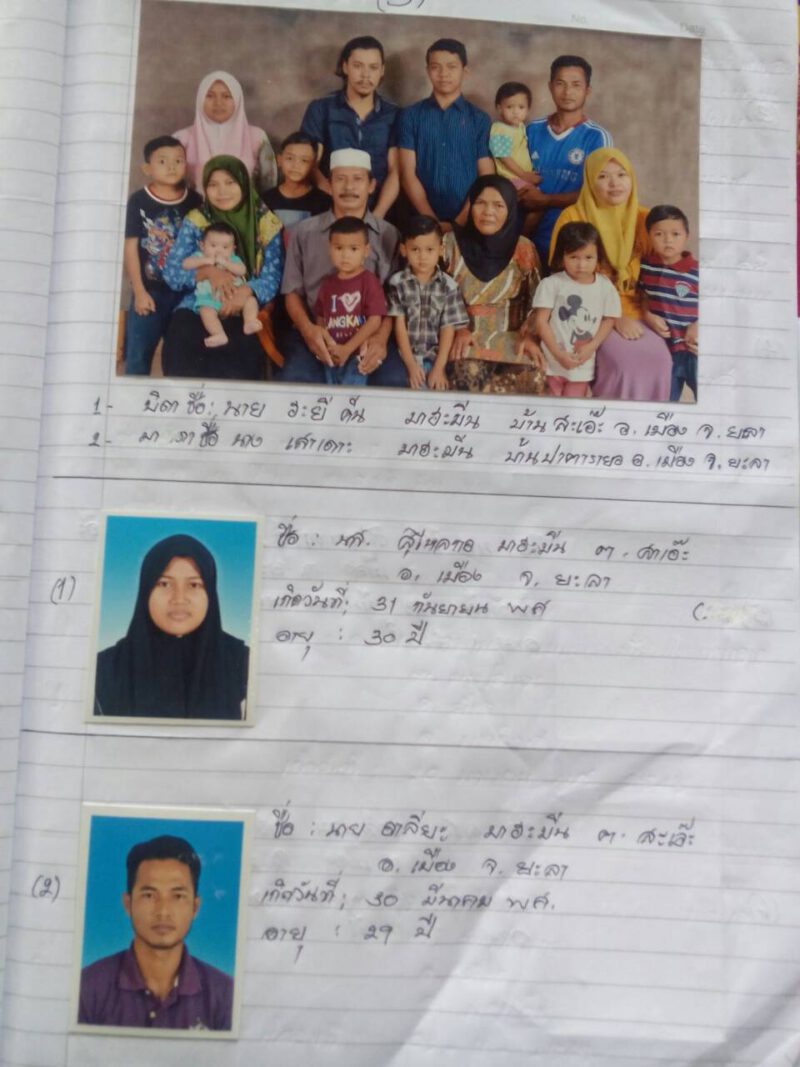 (3)
No.
Date
I ♥
LANGKAWI
1- บิดา ชื่อ: นาย ฮะยี ดีน มาฮะมีน บ้าน สะเอ๊ะ อ. เมือง จ. ยะลา
2- มา ดา ชื่อ นาง เสาเดาะ มาฮะมีน บ้าน อ. เมือง จ. ยะลา
(1)
ชื่อ : นส. มาฮะมีน ต.
อ. เมือง จ. ยะลา
เกิดวันที่; 31 กันยายน พศ
อายุ : 30 ปี
(2)
ชื่อ : นาย มาฮะมีน ต. สะเอ๊ะ
อ. เมือง จ. ยะลา
เกิดวันที่; 30 มีนาคม พศ.
อายุ : 29 ปี